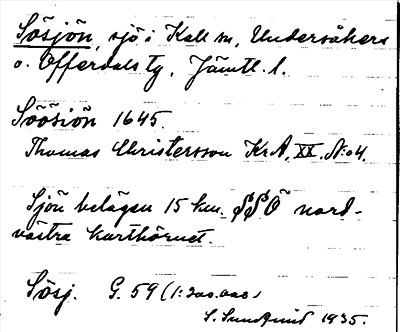 Sösjön, sjö i Kall sn, Undersåkers
o. Offerdals tg, Jämtl. l.
Söösiön 1645.
Thomas Christersson KrA, XX. N:o 4.
Sjön belägen 15 km. SSÖ nord-
västra karthörnet.
Sösj. G. 59 (1:200.000)
S. Sundqvist 1935.